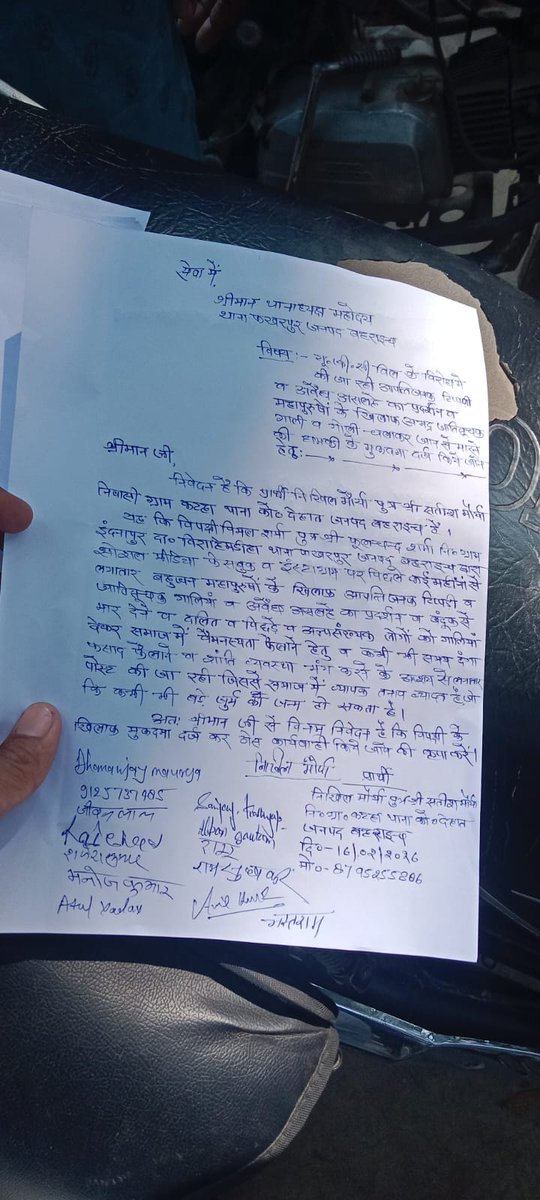 सेवा में,
श्रीमान थानाध्यक्ष महोदय
थाना फखरपुर जनपद बहराइच
विषय:- यू.जी.सी बिल के विरोध में
की जा रही आपत्तिजनक टिप्पणी
व अवैध असलहे का प्रदर्शन व
महापुरुषों के खिलाफ अभद्र जातिसूचक
गाली व गोली चलाकर जान से मारने
की धमकी के मुकदमा दर्ज किये जाने
हेतु:-
श्रीमान जी,
निवेदन है कि प्रार्थी निखिल मौर्या पुत्र श्री सतीश मौर्या
निवासी ग्राम कटहा थाना को० देहात जनपद बहराइच है।
यह कि विपक्षी विमल शर्मा पुत्र श्री फूलचन्द शर्मा नि० ग्राम
इंदनापुर दा० थाना फखरपुर जनपद बहराइच द्वारा
सोशल मीडिया फेसबुक व इंस्टाग्राम पर पिछले कई महीनों से
लगातार बहुजन महापुरुषों के खिलाफ आपत्तिजनक टिप्पणी व
जातिसूचक गालियां व अवैध असलहे का प्रदर्शन व बंदूक से
मार देने व दलित व पिछड़े व अल्पसंख्यक लोगों को गालियां
देकर समाज में वैमनस्यता फैलाने हेतु व कभी भी समाज दंगा
फसाद फैलाने व शांति व्यवस्था भंग करने के उद्देश्य से लगातार
पोस्ट की जा रही जिससे समाज में व्यापक तनाव व्याप्त है, जो
कि कभी भी बड़े जुर्म को जन्म हो सकता है।
अतः श्रीमान जी से विनम्र निवेदन है कि विपक्षी के
खिलाफ मुकदमा दर्ज कर ठोस कार्यवाही किये जाने की कृपा करें।
Dhananjay maurya
9125737985
जीवन लाल
Rakesh
मनोज कुमार
Atul Yadav
निखिल मौर्या
Sanjay
Gautam
राजू
भारतराम
प्रार्थी
निखिल मौर्या पुत्र श्री सतीश मौर्या
नि० ग्रा० कटहा थाना को० देहात
जनपद बहराइच
दि०-16/02/2026
मो०-8795255206